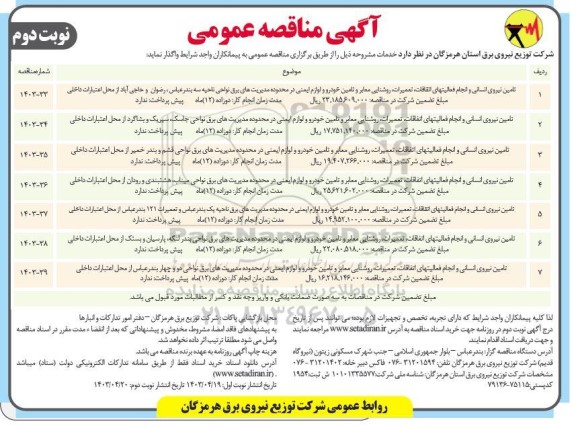 آگهی مناقصه عمومی
نوبت دوم
شرکت توزیع نیروی برق استان هرمزگان در نظر دارد خدمات مشروحه ذیل را از طریق برگزاری مناقصه عمومی به پیمانکاران واجد شرایط واگذار نماید:
ردیف موضوع شماره مناقصه
۱ تامین نیروی انسانی و انجام فعالیتهای اتفاقات، تعمیرات، روشنایی معابر و تامین خودرو و لوازم ایمنی در محدوده مدیریت های برق نواحی ناحیه سه بندرعباس، رضوان و حاجی آباد از محل اعتبارات داخلی ۱۴۰۳-۳۳
مبلغ تضمین شرکت در مناقصه: ۲۳,۱۸۵,۶۰۹,۰۰۰ ریال مدت زمان انجام کار: دوازده (۱۲)ماه پیش پرداخت ندارد
۲ تامین نیروی انسانی و انجام فعالیتهای اتفاقات، تعمیرات، روشنایی معابر و تامین خودرو و لوازم ایمنی در محدوده مدیریت های برق نواحی جاسک، سیریک و بشاگرد از محل اعتبارات داخلی ۱۴۰۳-۳۴
مبلغ تضمین شرکت در مناقصه: ۱۷,۷۵۱,۱۴۰,۰۰۰ ریال مدت زمان انجام کار: دوازده (۱۲)ماه پیش پرداخت ندارد
۳ تامین نیروی انسانی و انجام فعالیتهای اتفاقات، تعمیرات، روشنایی معابر و تامین خودرو و لوازم ایمنی در محدوده مدیریت های برق نواحی قشم و بندر خمیر از محل اعتبارات داخلی ۱۴۰۳-۳۵
مبلغ تضمین شرکت در مناقصه: ۱۹,۴۰۷,۲۶۶,۰۰۰ ریال مدت زمان انجام کار: دوازده (۱۲)ماه پیش پرداخت ندارد
۴ تامین نیروی انسانی و انجام فعالیتهای اتفاقات، تعمیرات، روشنایی معابر و تامین خودرو و لوازم ایمنی در محدوده مدیریت های برق نواحی میناب، هشتبندی و رودان از محل اعتبارات داخلی ۱۴۰۳-۳۶
مبلغ تضمین شرکت در مناقصه: ۲۵,۶۲۱,۶۰۲,۰۰۰ ریال مدت زمان انجام کار: دوازده (۱۲)ماه پیش پرداخت ندارد
۵ تامین نیروی انسانی و انجام فعالیتهای اتفاقات، تعمیرات، روشنایی معابر و تامین خودرو و لوازم ایمنی در محدوده مدیریت های برق ناحیه یک بندرعباس و تعمیرات ۱۲۱ بندرعباس از محل اعتبارات داخلی ۱۴۰۳-۳۷
مبلغ تضمین شرکت در مناقصه: ۱۴,۹۵۲,۱۰۰,۰۰۰ ریال مدت زمان انجام کار: دوازده (۱۲)ماه پیش پرداخت ندارد
۶ تامین نیروی انسانی و انجام فعالیتهای اتفاقات، تعمیرات، روشنایی معابر و تامین خودرو و لوازم ایمنی در محدوده مدیریت های برق نواحی بندر لنگه، پارسیان و بستک از محل اعتبارات داخلی ۱۴۰۳-۳۸
مبلغ تضمین شرکت در مناقصه: ۲۲,۰۸۰,۵۱۸,۰۰۰ ریال مدت زمان انجام کار: دوازده (۱۲)ماه پیش پرداخت ندارد
۷ تامین نیروی انسانی و انجام فعالیتهای اتفاقات، تعمیرات، روشنایی معابر و تامین خودرو و لوازم ایمنی در محدوده مدیریت های برق نواحی دو و چهار بندرعباس از محل اعتبارات داخلی ۱۴۰۳-۳۹
مبلغ تضمین شرکت در مناقصه: ۱۶,۲۱۸,۱۴۶,۰۰۰ ریال مدت زمان انجام کار: دوازده (۱۲)ماه پیش پرداخت ندارد
مبلغ تضمین شرکت در مناقصات به سه صورت ضمانت بانکی و واریز وجه نقد و کسر از مطالبات مورد قبول می باشد.
ParsNamadData
پایگاه اطلاع رسانی مناقصه و مزایده
لذا کلیه پیمانکاران واجد شرایط که دارای تجربه، تخصص و تجهیزات لازم بوده، می توانند پس از تاریخ
درج آگهی نوبت دوم در روزنامه جهت خرید اسناد مناقصه به آدرس www.setadiran.ir مراجعه نمایند
و جهت دریافت اسناد اقدام نمایند.
آدرس دستگاه مناقصه گزار: بندرعباس - بلوار جمهوری اسلامی - جنب شهرک مسکونی زیتون (نیروگاه
قدیم) شرکت توزیع نیروی برق هرمزگان تلفن: ۳۱۲۰۱۵۹۴-۰۷۶ فاکس دبیر خانه: ۳۱۲۰۱۴۰۲-۰۷۶
مشخصات شرکت توزیع نیروی برق استان هرمزگان: شناسه ملی شرکت ۱۰۱۰۱۳۳۵۵۷۷ ش ثبت: ۱۹۵۴
کدپستی: ۷۵۱۱۵-۷۹۱۳۶
محل بازگشایی پاکات : شرکت توزیع برق هرمزگان – دفتر امور تدارکات و انبارها
به پیشنهادهای فاقد امضا، مشروط، مخدوش و پیشنهاداتی که بعد از انقضا ء مدت مقرر در اسناد مناقصه
واصل می شود مطلقا ترتیب اثر داده نخواهد شد.
هزینه چاپ آگهی روزنامه به عهده برنده مناقصه می باشد.
آدرس دانلود اسناد خرید اسناد فقط از طریق سامانه تدارکات الکترونیکی دولت (ستاد) میباشد
(www.setadiran.ir).
تاریخ انتشار نوبت اول: ۱۴۰۳/۰۴/۱۹ تاریخ انتشار نوبت دوم: ۱۴۰۳/۰۴/۲۰
روابط عمومی شرکت توزیع نیروی برق هرمزگان